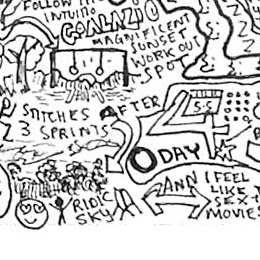 FOLLOW M
INTUITI
GOALNZO
MAGNIFICENT
SUNSET
WORK OUT
SPOT
STITCHES AFTER
3 SPRINTS
SS
4
0 DAY
RIDIC
SKY
ANN
I FEEL
LIKE
SEX
MOVIES